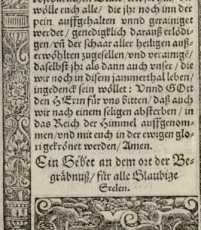 wölle euch alle / die jhr noch inn der
pein auffgehalten vnnd gerainiget
werdet / genedigklich darauß erlödi-
gen / vñ der schaar aller heiligen auß-
erwöhlten zugesellen / vnd verainigē /
daselbst jhr als dann auch vnser / die
wir noch in disem jammerthal leben /
ingedenck sein wöllet : Vnnd GOtt
den HErrn für vns bitten / daß auch
wir nach einem seligen absterben / in
das Reich der Himmel auffgenom-
men / vnd mit euch in der ewigen glo-
ri gekrönet werden / Amen.
Ein Gebet an dem ort der Be-
gräbnuß / für alle Glaubige
Seelen.